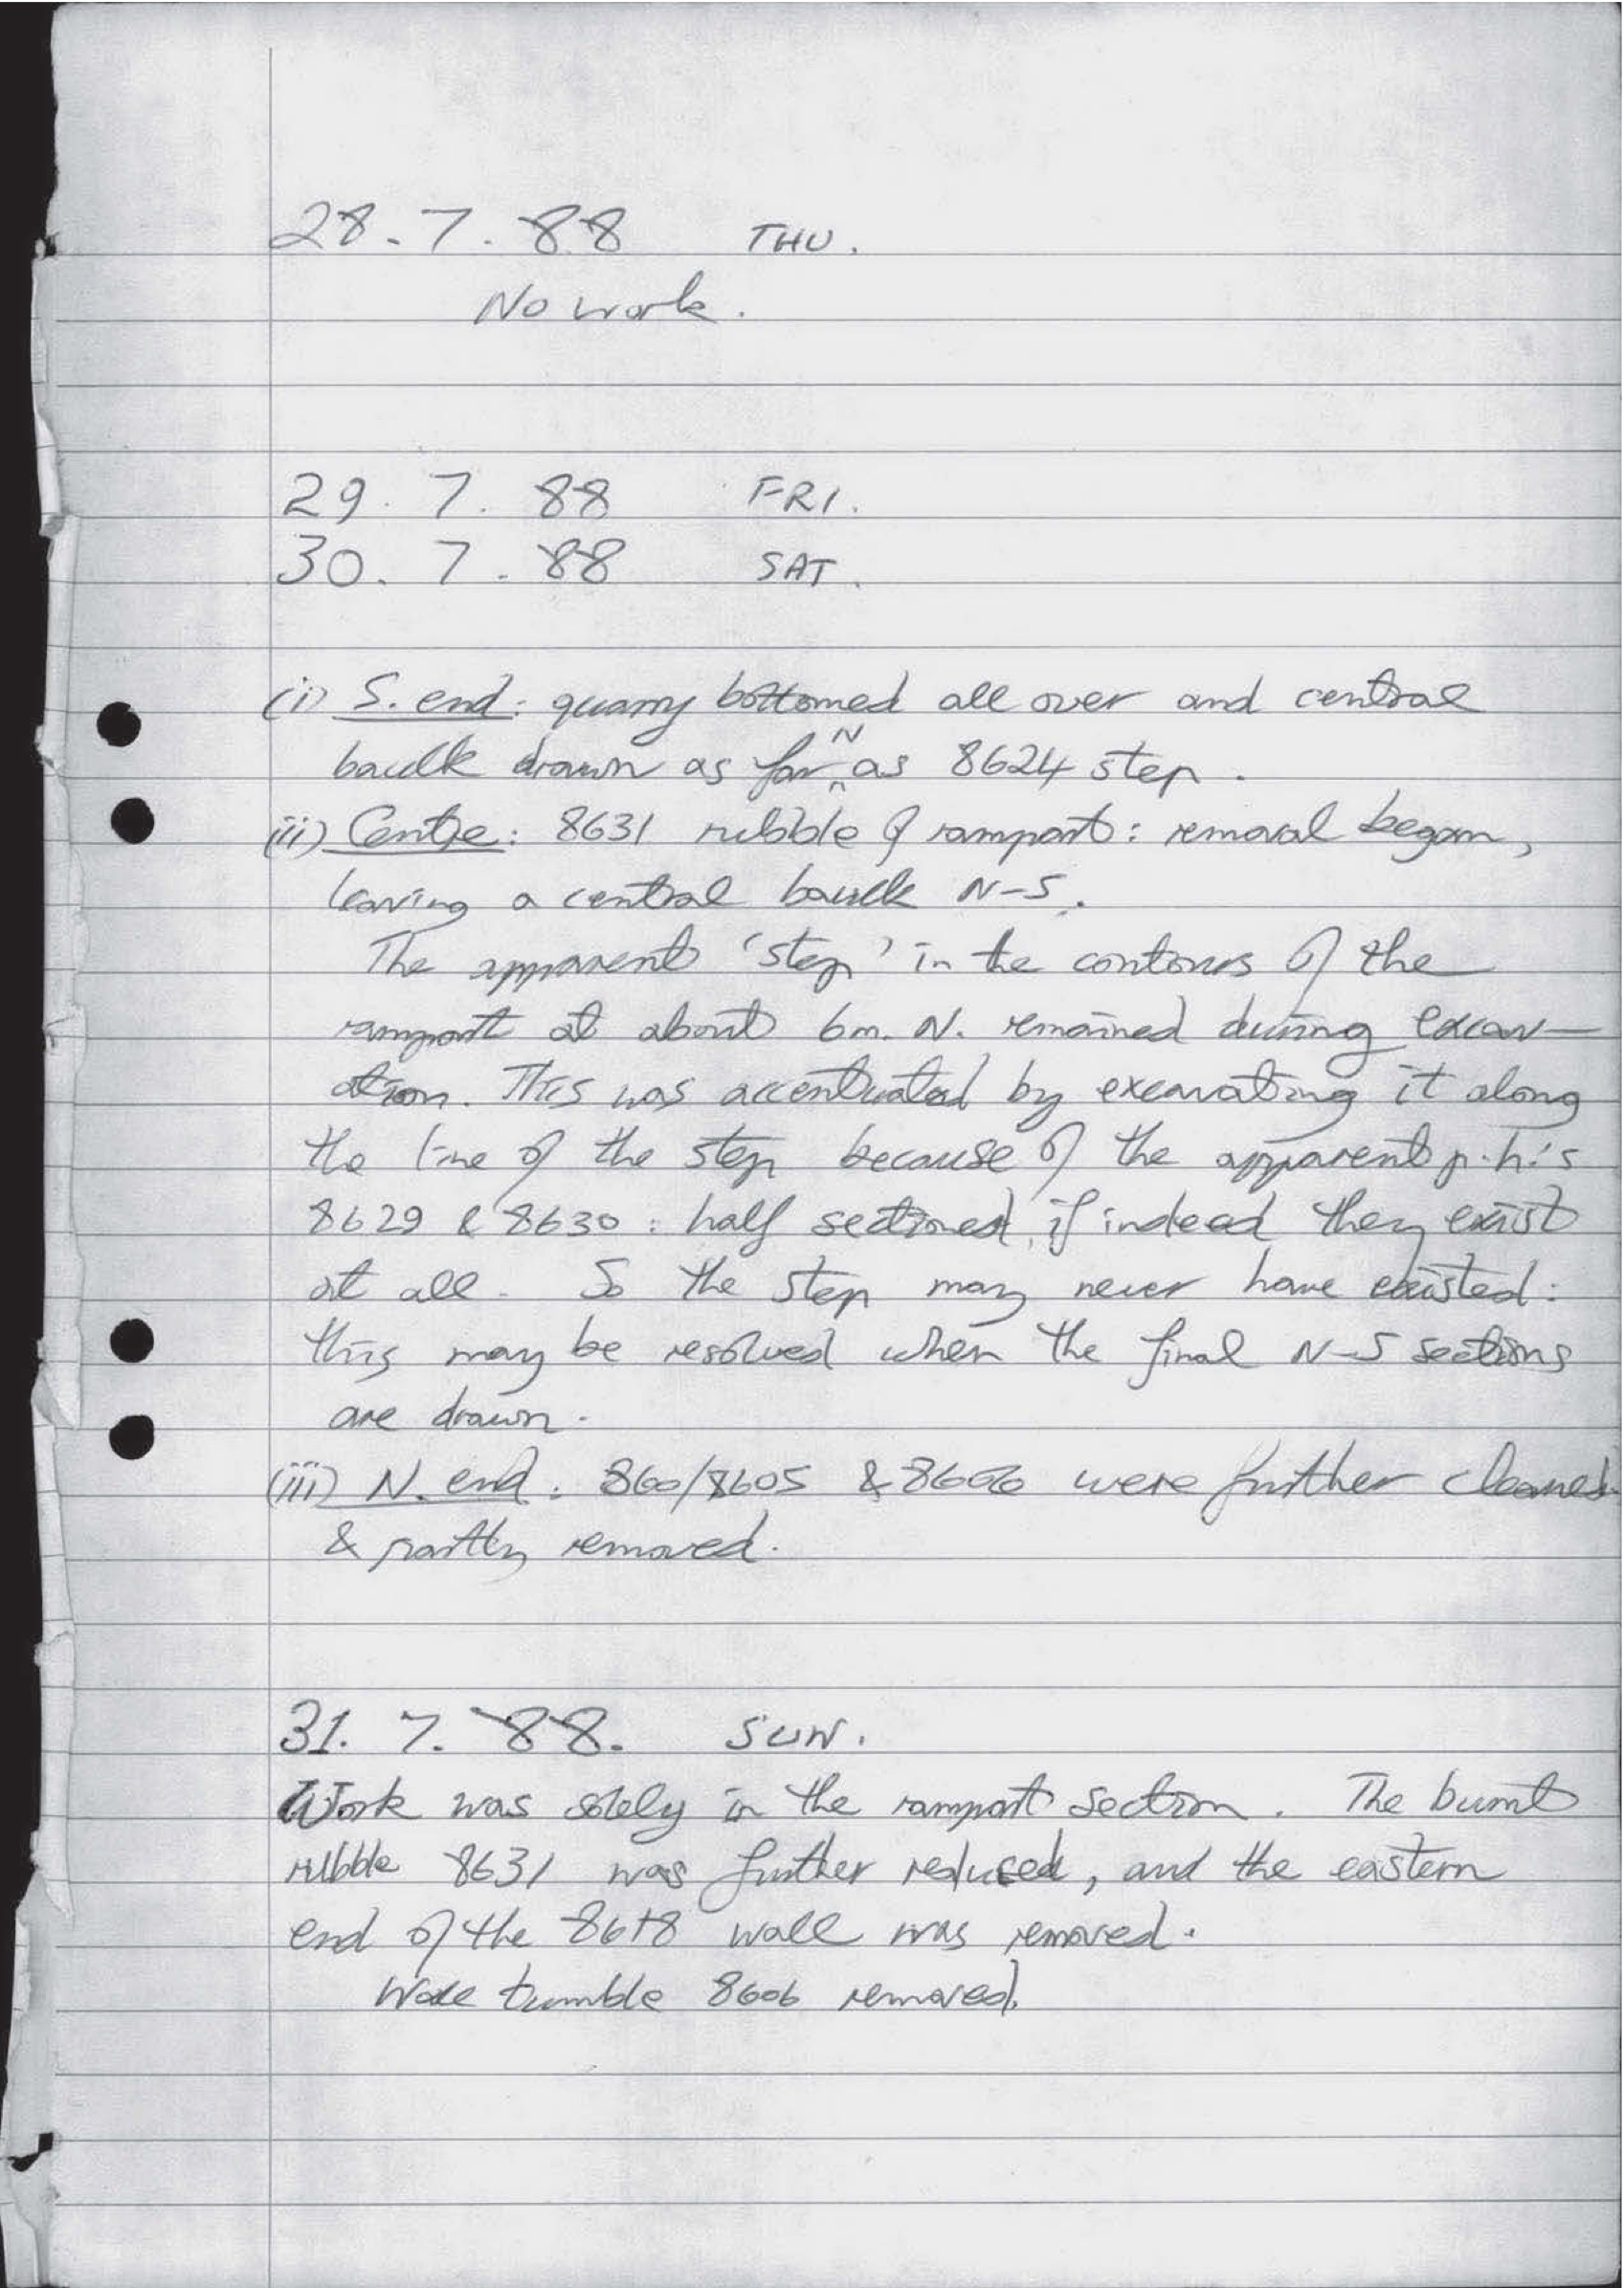 28.7.88 THU.
No work.
29.7.88 FRI.
30.7.88 SAT.
(i) S. end: quarry bottomed all over and central
baulk drawn as far N as 8624 step.
(ii) Centre: 8631 rubble of rampart: removal began,
leaving a central baulk N-S.
The apparent 'step' in the contours of the
rampart at about 6m. N. remained during excav-
ation. This was accentuated by excavating it along
the line of the step because of the apparent p.h's
8629 & 8630: half sectioned, if indeed they exist
at all. So the step may never have existed:
this may be resolved when the final N-S sections
are drawn.
(iii) N. end: 860/8605 & 8606 were further cleaned
& partly removed.
31.7.88. SUN.
Work was solely in the rampart section. The burnt
rubble 8631 was further reduced, and the eastern
end of the 8618 wall was removed.
Wall tumble 8606 removed.